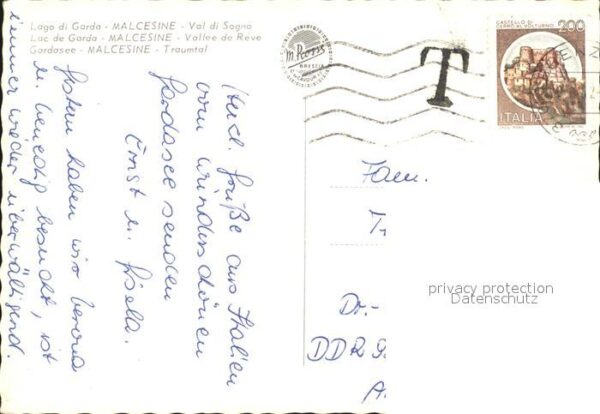 Lago di Garda - MALCESINE - Val di Sogno
Lac de Garda - MALCESINE - Vallee de Reve
Gardasee - MALCESINE - Traumtal
BRESCIA
T
CASTELLO DI
CERRO AL VOLTURNO
200
ITALIA
Herzl. Grüße aus Italien
vom wunderschönen
Gardasee senden
Ernst u. Gisela.
Gestern haben wir Verona
u. Venedig besucht, ist
immer wieder überwältigend.
Fam.
Dr.-
DDR
privacy protection
Datenschutz